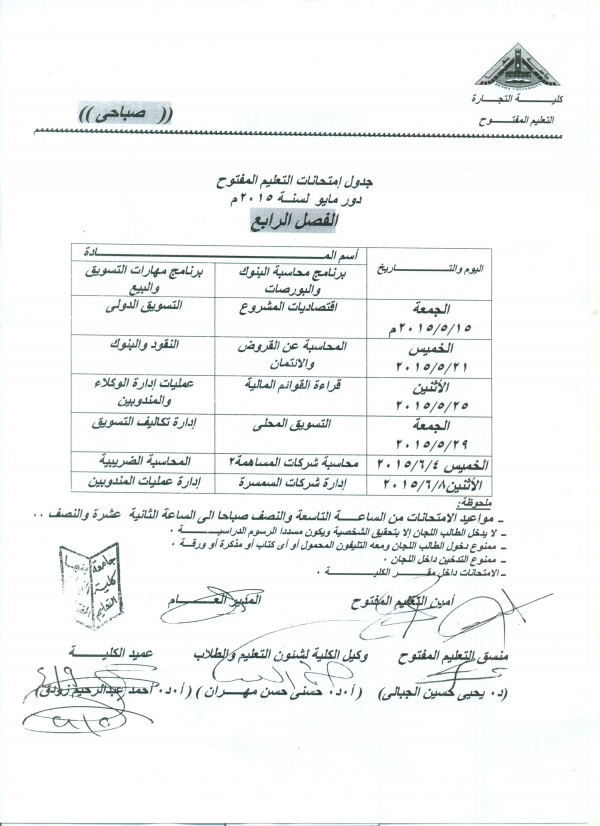 كليـــة التجـارة
التعليم المفتـوح
(( صباحى ))
جدول إمتحانات التعليم المفتوح
دور مايو لسنة ٢٠١٥م
الفصل الرابع
اليوم والتـــاريخ
أسم المـــــــــادة
برنامج محاسبة البنوك والبورصات
برنامج مهارات التسويق والبيع
الجمعة ٢٠١٥/٥/١٥م
اقتصاديات المشروع
التسويق الدولى
الخميس ٢٠١٥/٥/٢١
المحاسبة عن القروض والائتمان
النقود والبنوك
الأثنين ٢٠١٥/٥/٢٥
قراءة القوائم المالية
عمليات إدارة الوكلاء والمندوبين
الجمعة ٢٠١٥/٥/٢٩
التسويق المحلى
إدارة تكاليف التسويق
الخميس ٢٠١٥/٦/٤
محاسبة شركات المساهمة٢
المحاسبة الضريبية
الأثنين٢٠١٥/٦/٨
إدارة شركات السمسرة
إدارة عمليات المندوبين
ملحوظة:
ـ مواعيد الامتحانات من الساعـــة التاسعة والنصف صباحا الى الساعة الثانية عشرة والنصف ..
ـ لا يدخل الطالب اللجان إلا بتحقيق الشخصية ويكون مسددا الرسوم الدراسيـة .
ـ ممنوع دخول الطالب اللجان ومعه التليفون المحمول أو أى كتاب أو مذكرة أو ورقة .
ـ ممنوع التدخين داخل اللجان .
ـ الامتحانات داخل مقـــر الكليـــة .
جامعة بنها
كلية
التعليم
أمين التعليم المفتوح
المدير العـــام
منسق التعليم المفتوح
وكيل الكلية لشئون التعليم والطلاب
عميد الكليـــة
(د. يحيى حسين الجبالى)
(أ.د. حسنى حسن مهـران)
(أ.د. أحمد عبدالرحيم زردق)